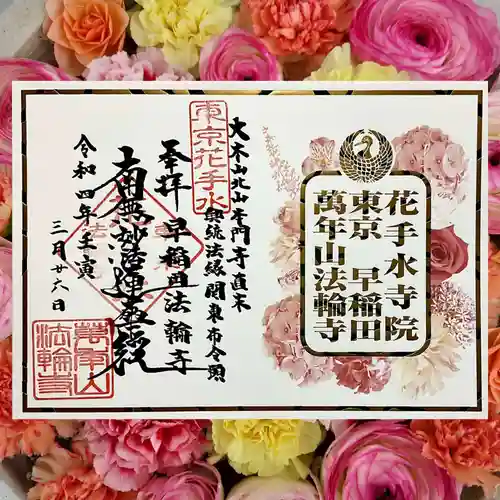 花手水寺院
東京 早稲田
萬年山法輪寺
大本山北山本門寺直末
興統法縁 関東布令頭
東京花手水
奉拝 早稲田法輪寺
南無妙法蓮華経
令和四年壬寅
三月廿六日
萬年山
法輪寺